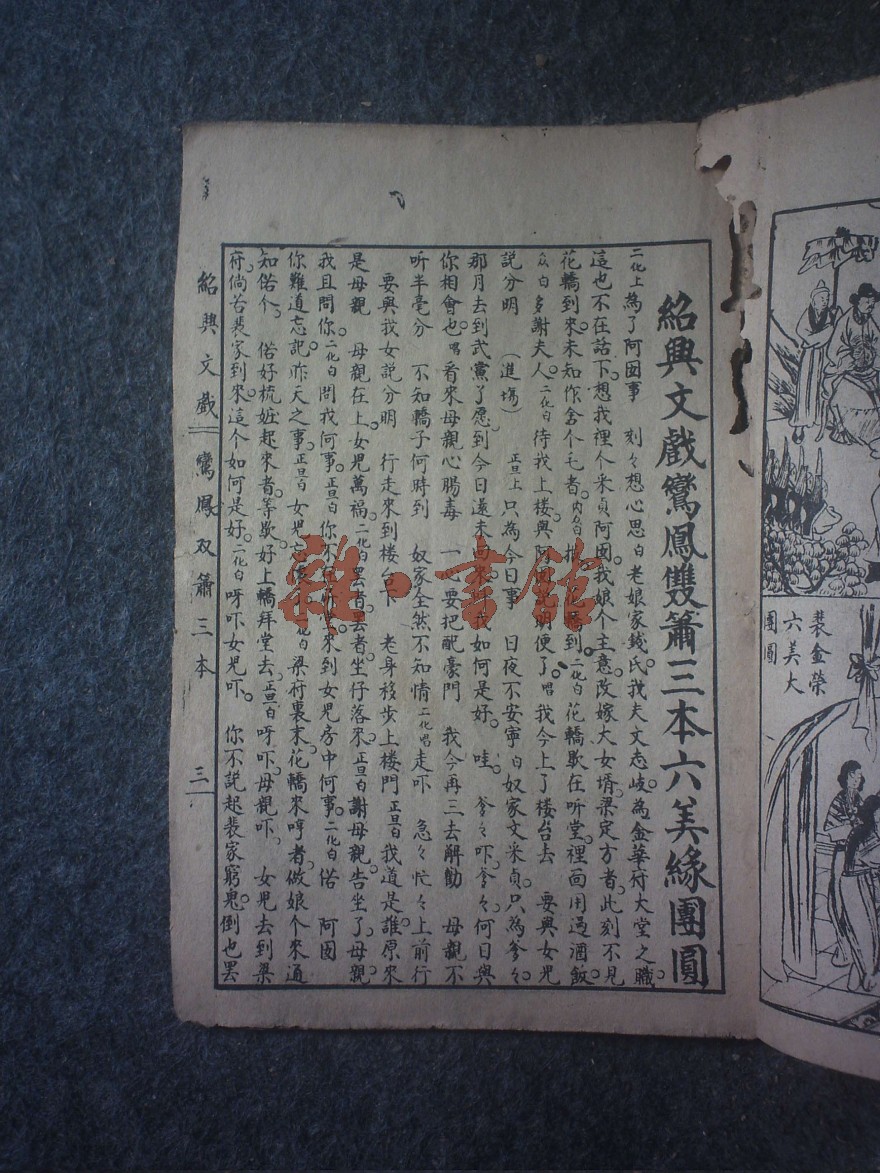 裴金榮
六美大
團圓
紹興文戲鸞鳳雙簫三本六美緣團圓
二化上為了阿囡事 刻々想心思白老娘家錢氏我夫文志岐為金華府大堂之職
這也不在話下想我裡个米貞阿囡我娘个主意改嫁大女壻梁定方者此刻不見
花轎到來未知作舍个乇者内白 到二化白花轎歇在听堂裡面用過酒飯
众白多謝夫人二化白待我上楼與阿 便了唱我今上了楼台去 要與女兒
說分明 (進塲) 正旦上只為今日事 日夜不安寧白奴家文米貞只為爹々
那月去到武黨了愿到今日還未 我如何是好哇爹々吓爹々何日與
你相會也唱看來母親心腸毒 一心要把配豪門 我今再三去解勸 母親不
听半毫分 不知轎子何時到 奴家全然不知情二化唱走吓 急々忙々上前行
要與我女説分明 行走來到楼台下 老身移步上楼門正旦白我道是誰原來
是母親 母親在上女兒萬福二化白罢者罢者坐仔落來正旦白謝母親告坐了母親
我且問你二化白問我何事正旦白你不 來到女兒房中何事二化白偖 阿囡
你難道忘記昨天之事正旦白女兒忘 白梁府裏末花轎來哼者做娘个來通
知偖个 偖好梳妝起來者等歇好上轎拜堂去正旦白呀吓母親吓 女兒去到梁
府倘若裴家到來這个如何是好二化白呀吓女兒吓 你不説起裴家窮鬼倒也罢
紹興文戲 鸞鳳双簫三本 三
雜·書館